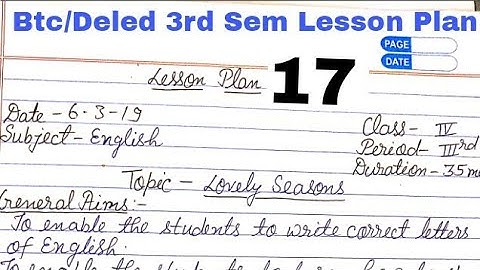 Btc/Deled 3rd Sem Lesson Plan
PAGE
DATE
Lesson Plan 17
Date - 6.3-19
Class- IV
Subject- English
Period- IIIrd
Duration- 35m
Topic - Lovely Seasons
General Aims:-
To enable the students to write correct letters
of English.
To enable the